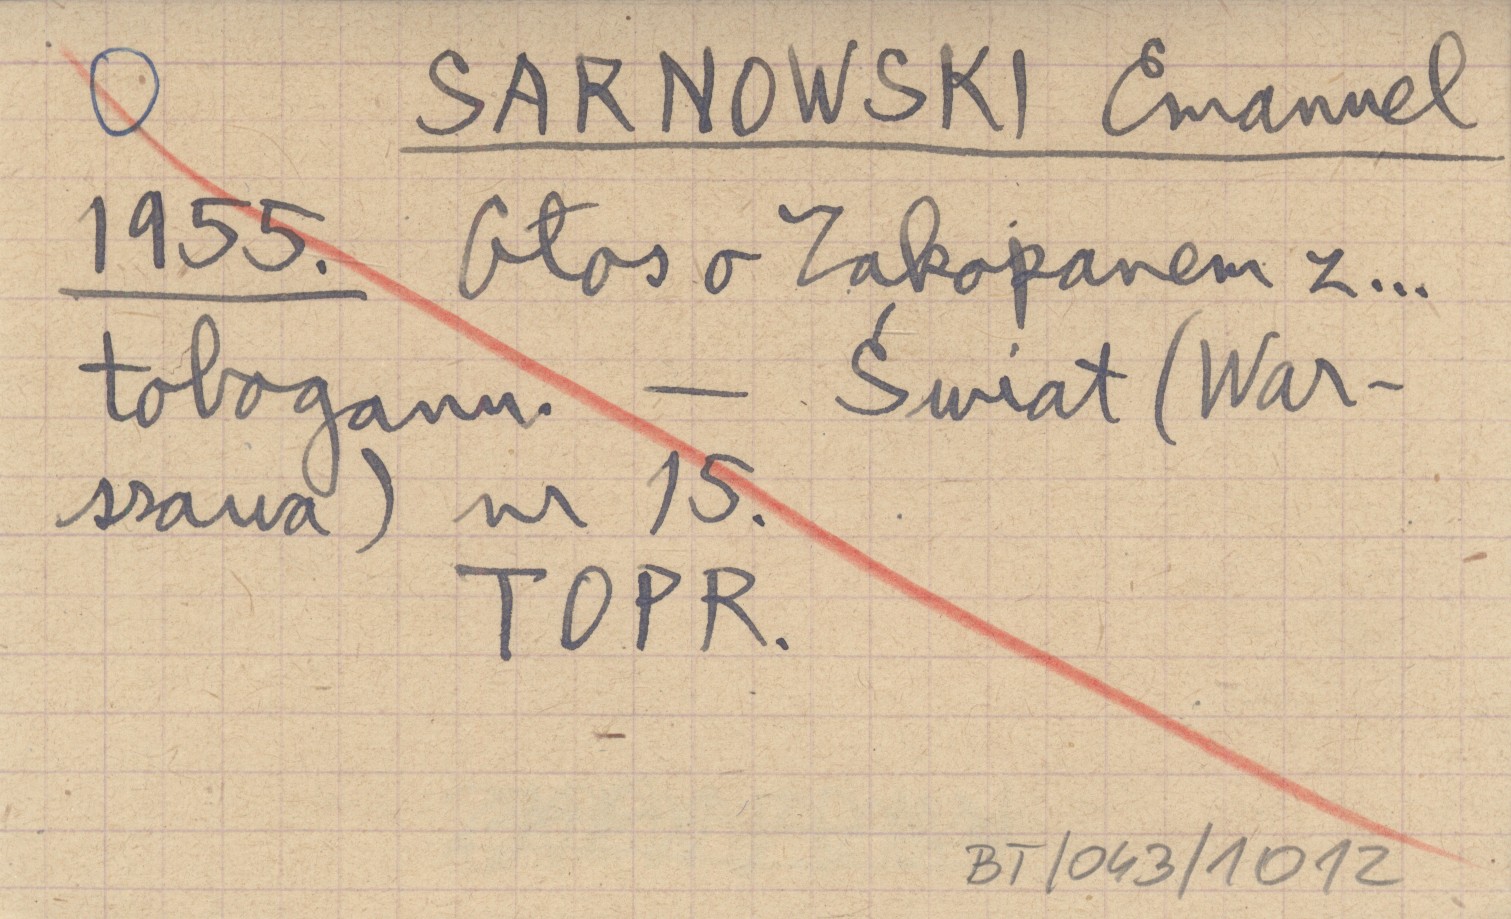 SARNOWSKI Emanuel
1955. Głos o Zakopanem z...
toboganu. — Świat (War-
szawa) nr 15.
TOPR.
BT/043/1012